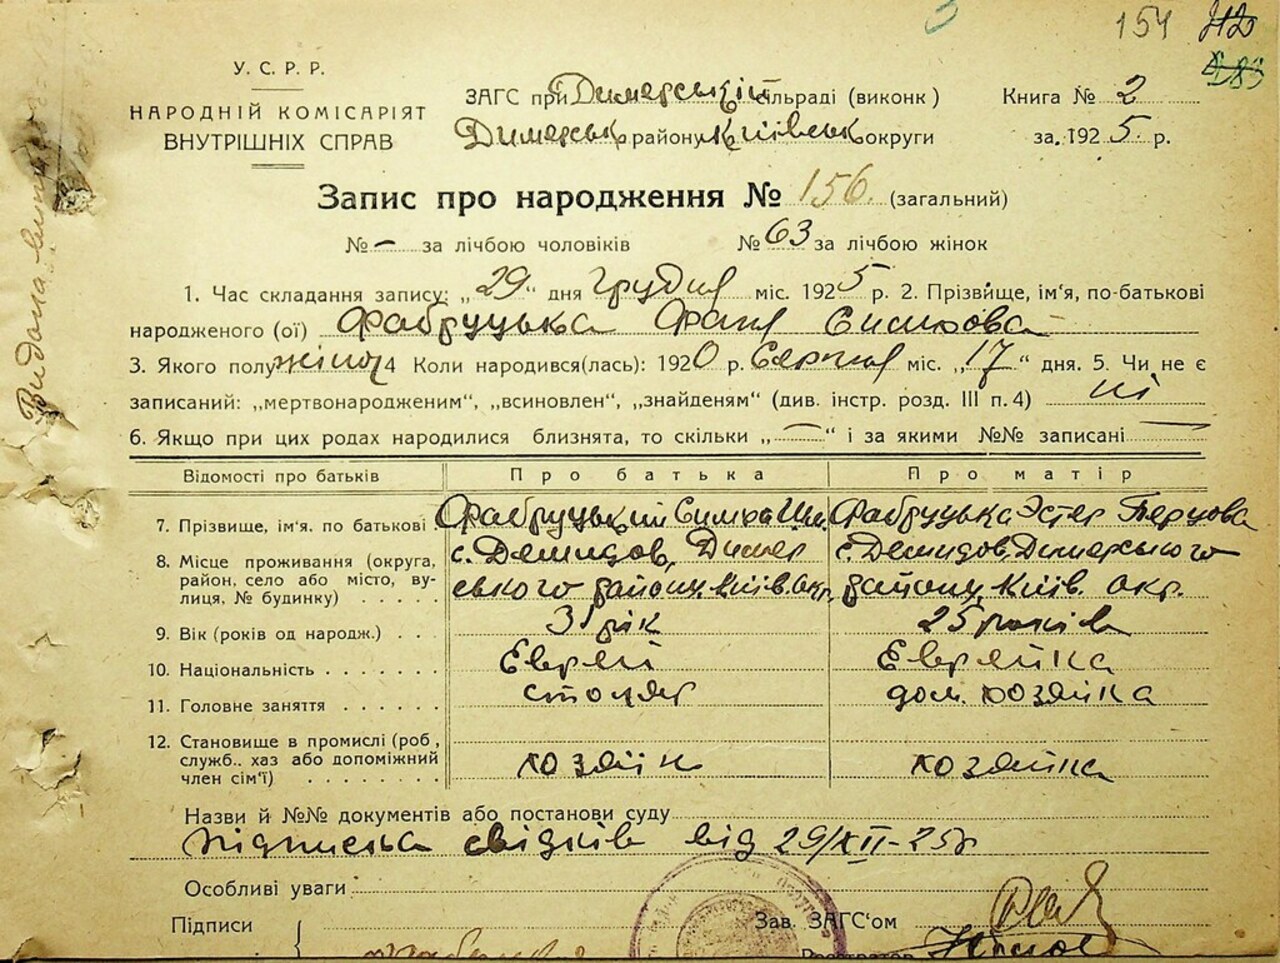 154
У. С. Р. Р.
НАРОДНІЙ КОМІСАРІЯТ
ВНУТРІШНІХ СПРАВ
ЗАГС при Димерській сільраді (виконк)
Димерськ району Київськ округи
Книга № 2
за 1925 р.
Запис про народження № 156. (загальний)
№ — за лічбою чоловіків № 63 за лічбою жінок
1. Час складання запису: „29“ дня грудня міс. 1925 р. 2. Прізвище, ім'я, по-батькові
народженого (ої) Фабруцька Фаня Симхова
3. Якого полу жіноч 4 Коли народився(лась): 1920 р. Серпня міс. „17“ дня. 5. Чи не є
записаний: „мертвонародженим“, „всиновлен“, „знайденям“ (див. інстр. розд. III п. 4) ні
6. Якщо при цих родах народилися близнята, то скільки „—“ і за якими №№ записані —
Відомості про батьків Про батька Про матір
7. Прізвище, ім'я. по батькові Фабруцький Симха Фабруцька Эстер Берцова
8. Місце проживання (округа, район, село або місто, вулиця, № будинку) с. Демидов, Димерського району, Київ. окр. с. Демидов, Димерського району Київ. окр.
9. Вік (років од народж.) 31 рік 25 років
10. Національність Еврей Еврейка
11. Головне заняття столяр дом. хозяйка
12. Становище в промислі (роб, служб.. хаз або допоміжний член сім'ї) хозяїн хозяйка
Назви й №№ документів або постанови суду
підписька свідків від 29/XII-25р
Особливі уваги
Підписи
Зав. ЗАГС'ом
Реєстратор